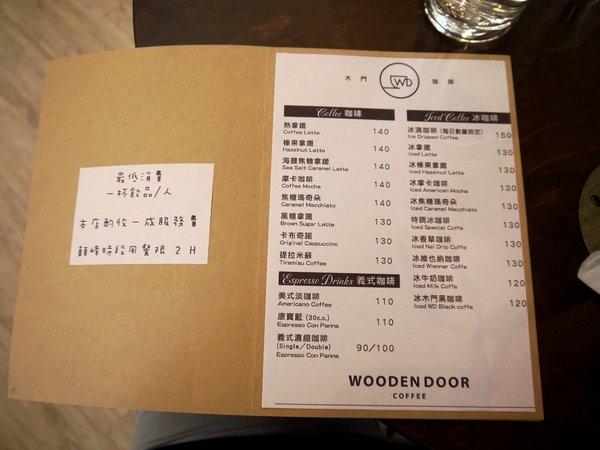 最低消費
一杯飲品/人
本店酌收一成服務費
顛峰時段用餐限2H
木門
WD
咖啡
Coffee 咖啡
熱拿鐵
Coffee Latte 140
榛果拿鐵
Hazelnut Latte 140
海鹽焦糖拿鐵
Sea Salt Caramel Latte 140
摩卡咖啡
Coffee Mocha 140
焦糖瑪奇朵
Caramel Macchiato 140
黑糖拿鐵
Brown Sugar Latte 130
卡布奇諾
Original Cappuccino 130
提拉米蘇
Tiramisu Coffee 130
Espresso Drinks 義式咖啡
美式淡咖啡
Americano Coffee 110
康寶藍 (30c.c.)
Espresso Con Panna 110
義式濃縮咖啡
(Single/Double) 90/100
Espresso Con Panna
Iced Coffee 冰咖啡
冰滴咖啡 (每日數量限定)
Ice Dripped Coffee 150
冰拿鐵
Iced Latte 130
冰榛果拿鐵
Iced Hazelnut Latte 130
冰摩卡咖啡
Iced American Mocha 130
冰焦糖瑪奇朵
Iced Caramel Macchiato 130
特調冰咖啡
Iced Special Coffe 130
冰香草咖啡
Iced Nel Drip Coffe 130
冰維也納咖啡
Iced Wienner Coffe 130
冰牛奶咖啡
Iced Milk Coffe 120
冰木門黑咖啡
Iced WD Black coffe 120
WOODEN DOOR
COFFEE